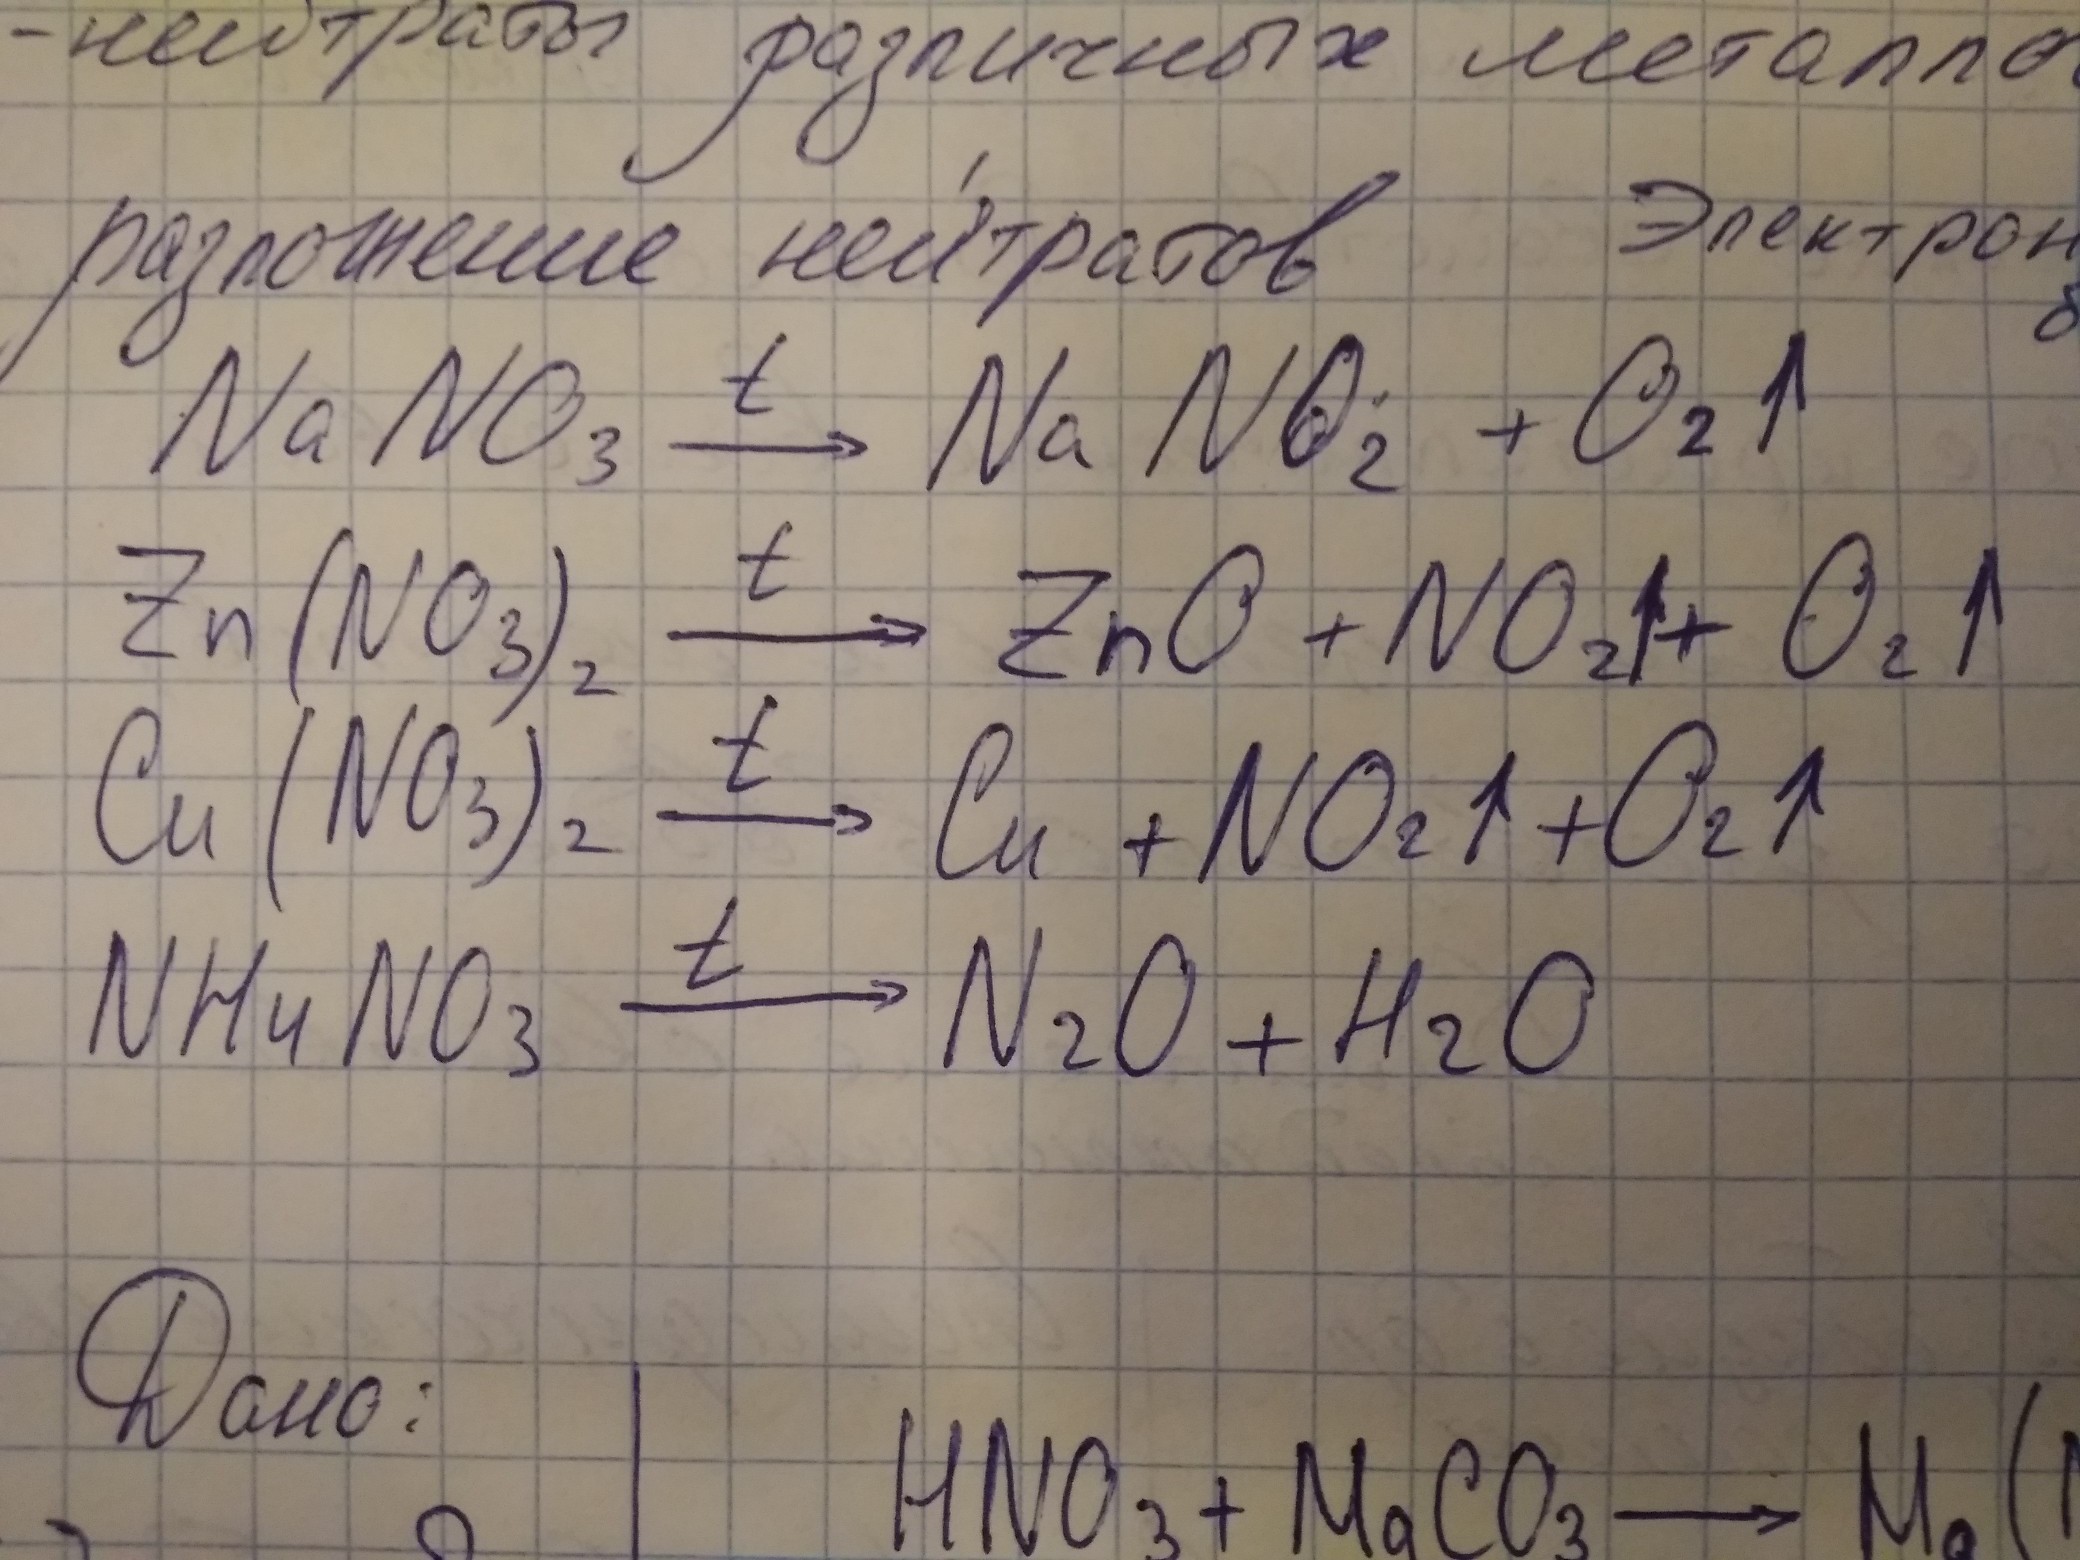 -нейтраты различных металло
разложение нейтратов Электрон
NaNO3 t→ NaNO2 + O2↑
Zn(NO3)2 t→ ZnO + NO2↑ + O2↑
Cu(NO3)2 t→ Cu + NO2↑ + O2↑
NH4NO3 t→ N2O + H2O
Дано:
HNO3 + MgCO3 → Mg(